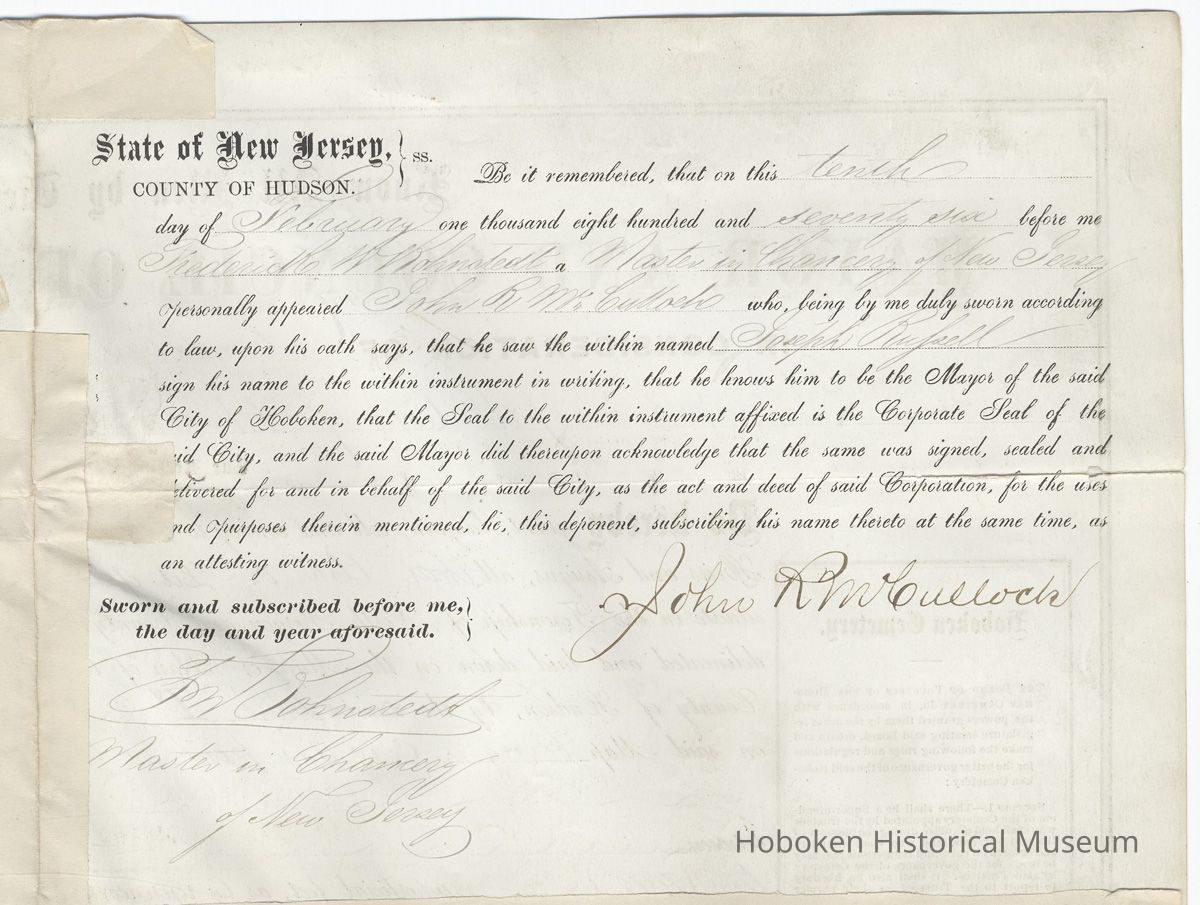 State of New Jersey, } ss.
COUNTY OF HUDSON.
Be it remembered, that on this tenth
day of February one thousand eight hundred and seventy six before me
Frederick W Bohnstedt a Master in Chancery of New Jersey
personally appeared John R McCulloch who, being by me duly sworn according
to law, upon his oath says, that he saw the within named Joseph Russell
sign his name to the within instrument in writing, that he knows him to be the Mayor of the said
City of Hoboken, that the Seal to the within instrument affixed is the Corporate Seal of the
aid City, and the said Mayor did thereupon acknowledge that the same was signed, sealed and
delivered for and in behalf of the said City, as the act and deed of said Corporation, for the uses
nd purposes therein mentioned, he, this deponent, subscribing his name thereto at the same time, as
an attesting witness.
John R McCulloch
Sworn and subscribed before me, }
the day and year aforesaid.
F W Bohnstedt
Master in Chancery
of New Jersey
Hoboken Historical Museum